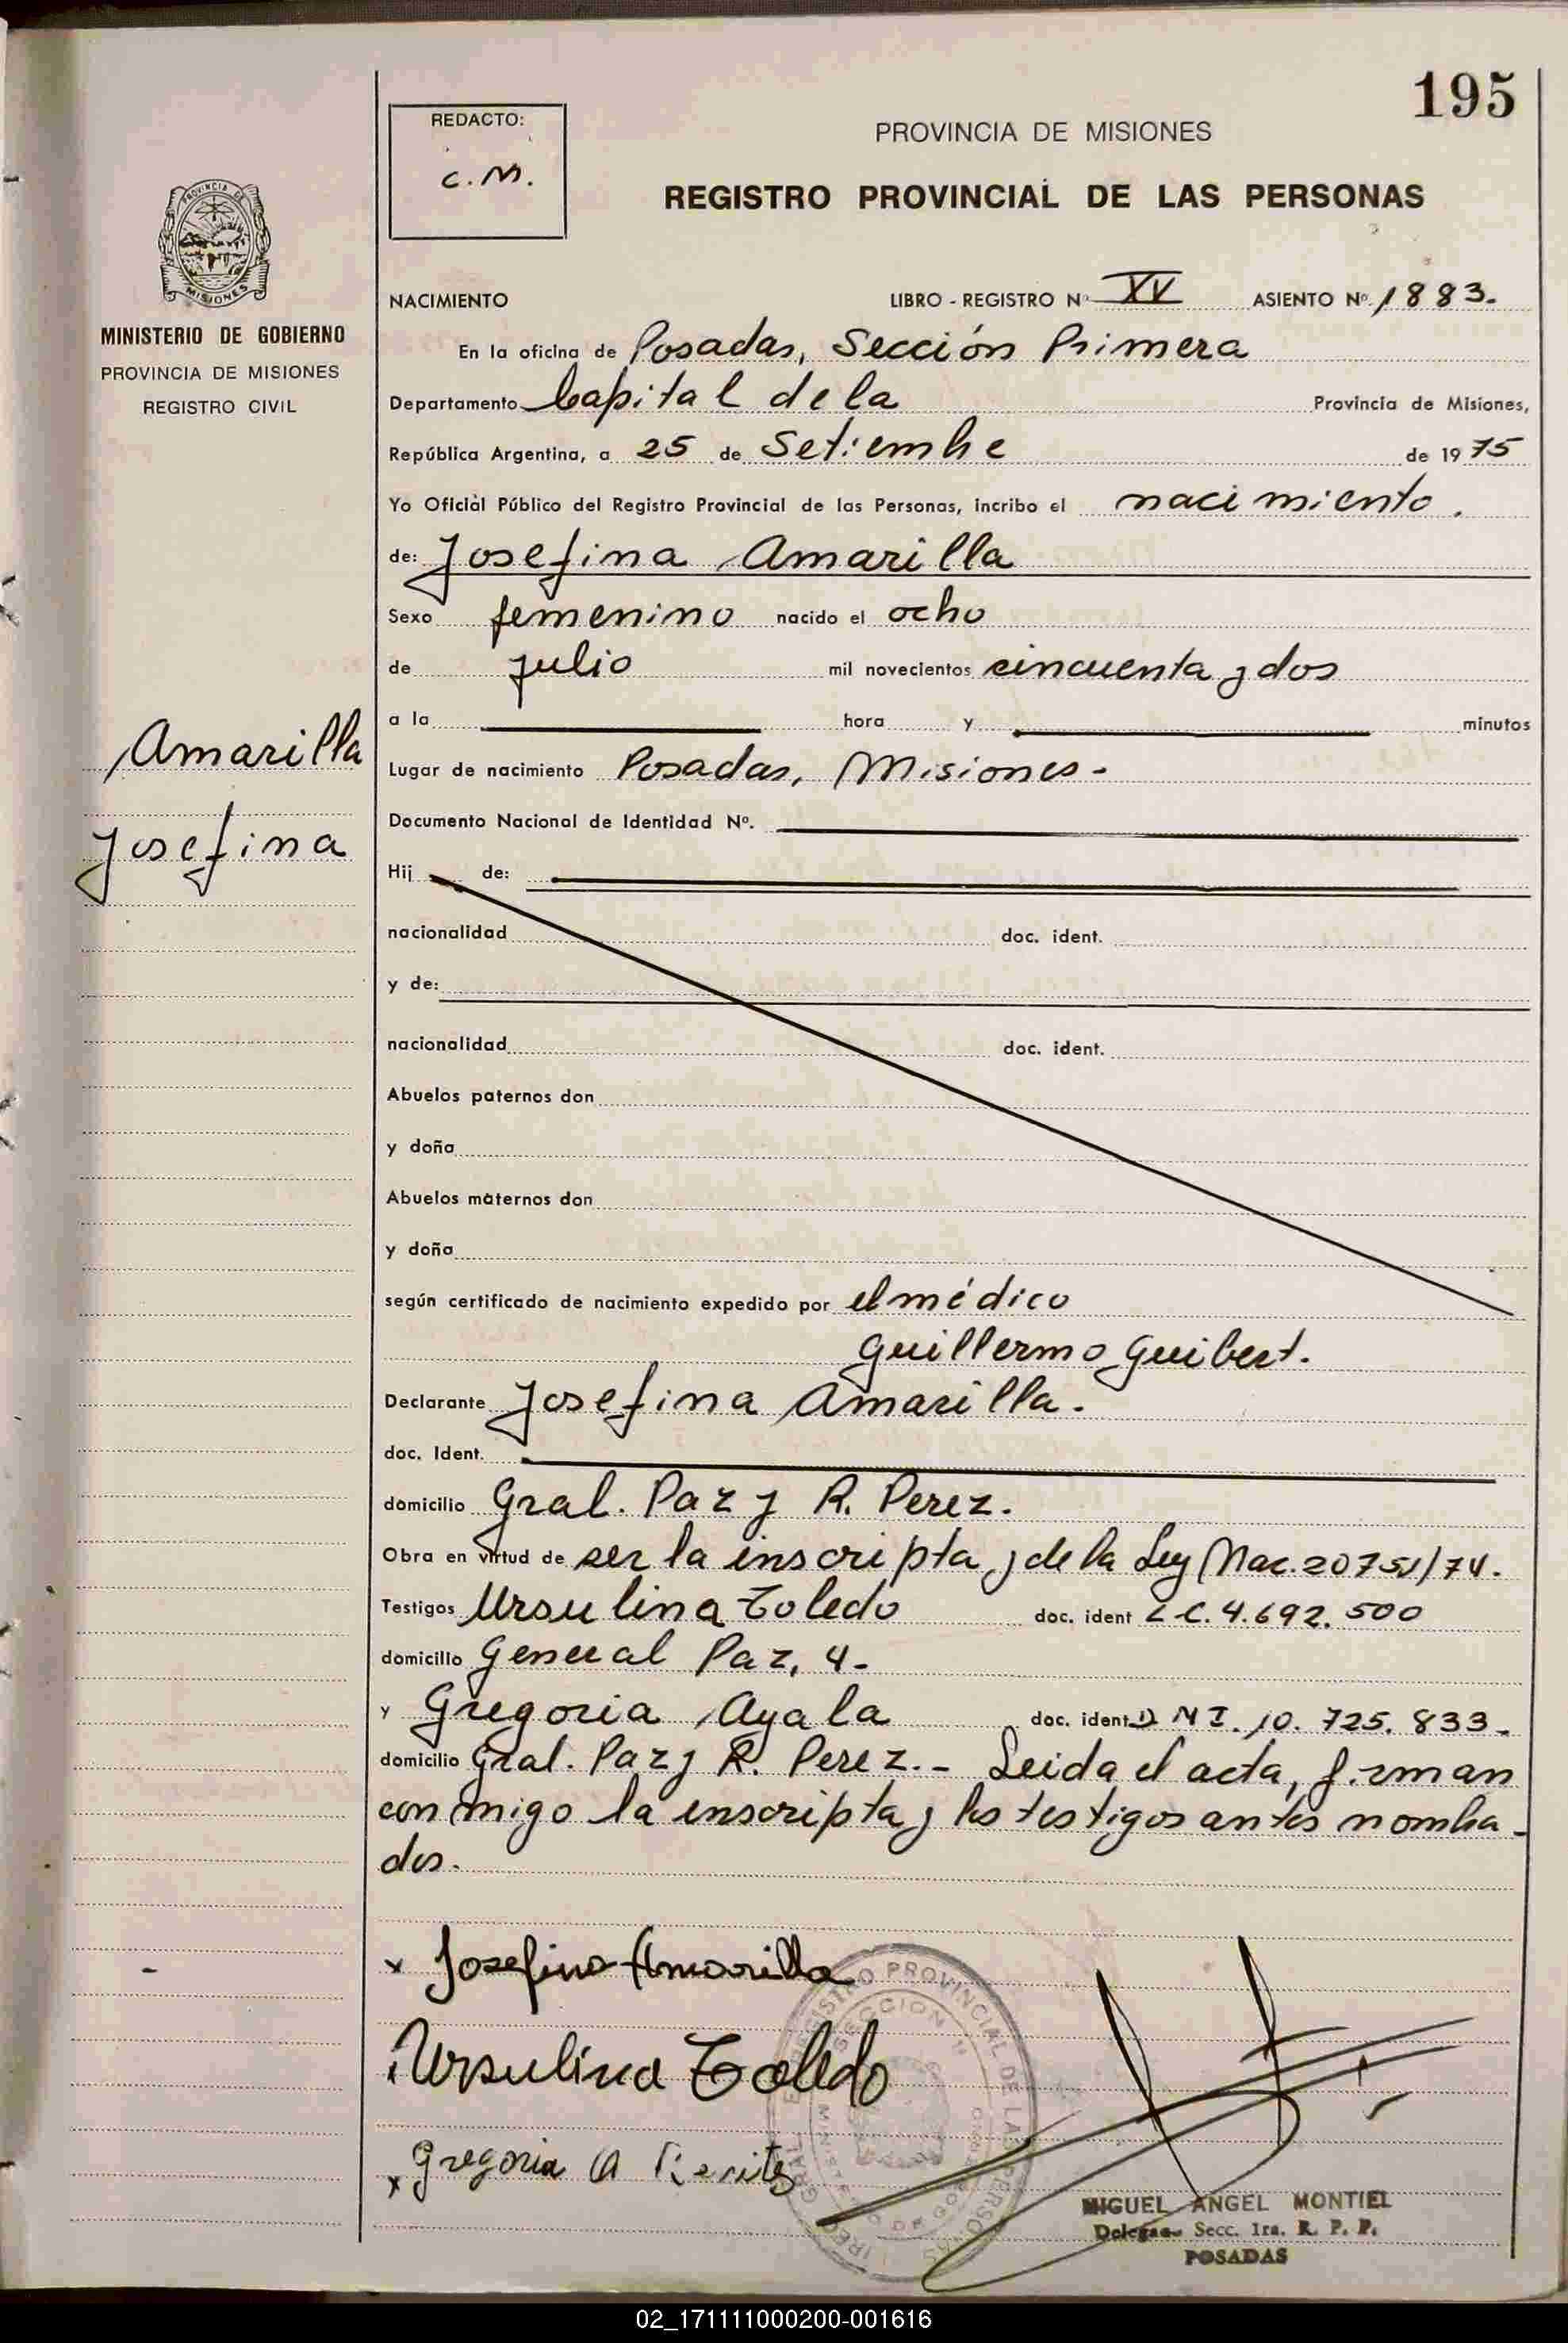 195
REDACTO:
C.M.
PROVINCIA DE MISIONES
REGISTRO PROVINCIAL DE LAS PERSONAS
PROVINCIA DE
MISIONES
MINISTERIO DE GOBIERNO
PROVINCIA DE MISIONES
REGISTRO CIVIL
NACIMIENTO LIBRO - REGISTRO Nº XV ASIENTO Nº 1883.
En la oficina de Posadas, Sección Primera
Departamento Capital de la Provincia de Misiones,
República Argentina, a 25 de Setiembre de 1975
Yo Oficial Público del Registro Provincial de las Personas, incribo el nacimiento.
de: Josefina Amarilla
Sexo femenino nacido el ocho
de julio mil novecientos cincuenta y dos
a la hora y minutos
Amarilla
Josefina
Lugar de nacimiento Posadas, Misiones-
Documento Nacional de Identidad Nº.
Hij de:
nacionalidad doc. ident.
y de:
nacionalidad doc. ident.
Abuelos paternos don
y doña
Abuelos maternos don
y doña
según certificado de nacimiento expedido por el médico
Guillermo Guibert.
Declarante Josefina Amarilla.
doc. Ident.
domicilio Gral. Paz y R. Perez.
Obra en virtud de ser la inscripta y de la Ley Nac. /74.
Testigos Ursulina Toledo doc. ident L.C. 4.692.500
domicilio General Paz, 4-
y Gregoria Ayala doc. ident. D N I. 10. 725. 833-
domicilio Gral. Paz y R. Perez.- Leida el acta, firman
conmigo la inscripta y los testigos antes nombra-
dos.
x Josefina Amarilla
Ursulina Toledo
x Gregoria A
MIGUEL ANGEL MONTIEL
Delegado Secc. 1ra. R. P. P.
POSADAS
02_171111000200-001616